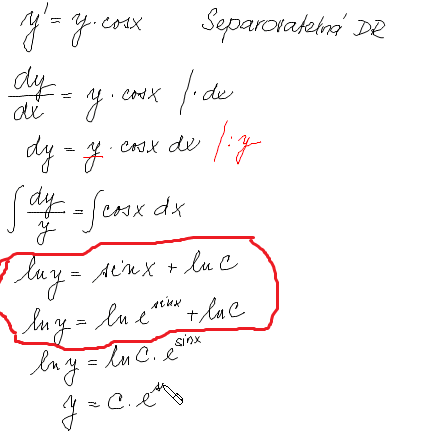 y' = y · cosx Separovatelná DR
dy/dx = y · cosx /· dx
dy = y · cosx dx /: y
∫ dy/y = ∫ cosx dx
ln y = sinx + ln C
ln y = ln e^sinx + ln C
ln y = ln C · e^sinx
y = C · e^s